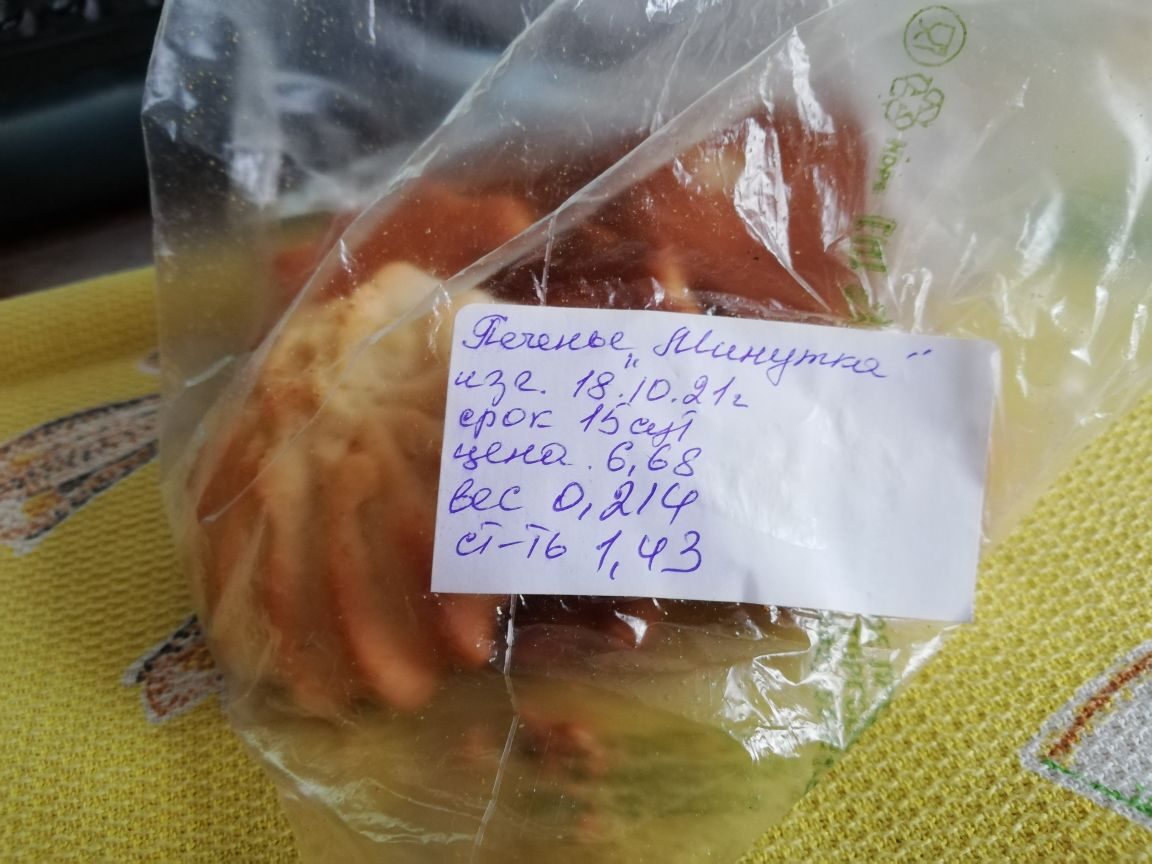 Печенье „Минутка"
изг. 18.10.21г
срок 15 сут
цена. 6,68
вес 0,214
ст-ть 1,43